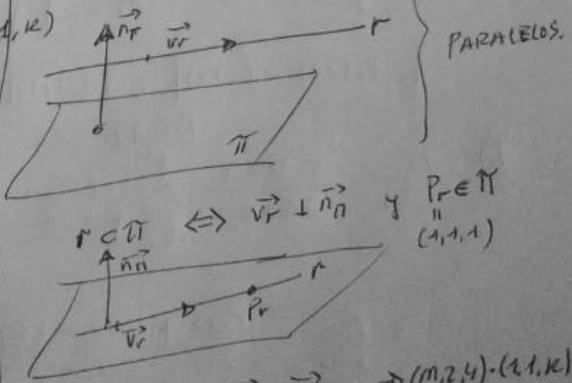 1,k)
n⃗π v⃗r r
PARALELOS.
π
r ⊂ π ⇔ v⃗r ⊥ n⃗π y Pr ∈ π
"
(1,1,1)
n⃗π r
Pr
v⃗r
(m,2,4)·(2,1,k)